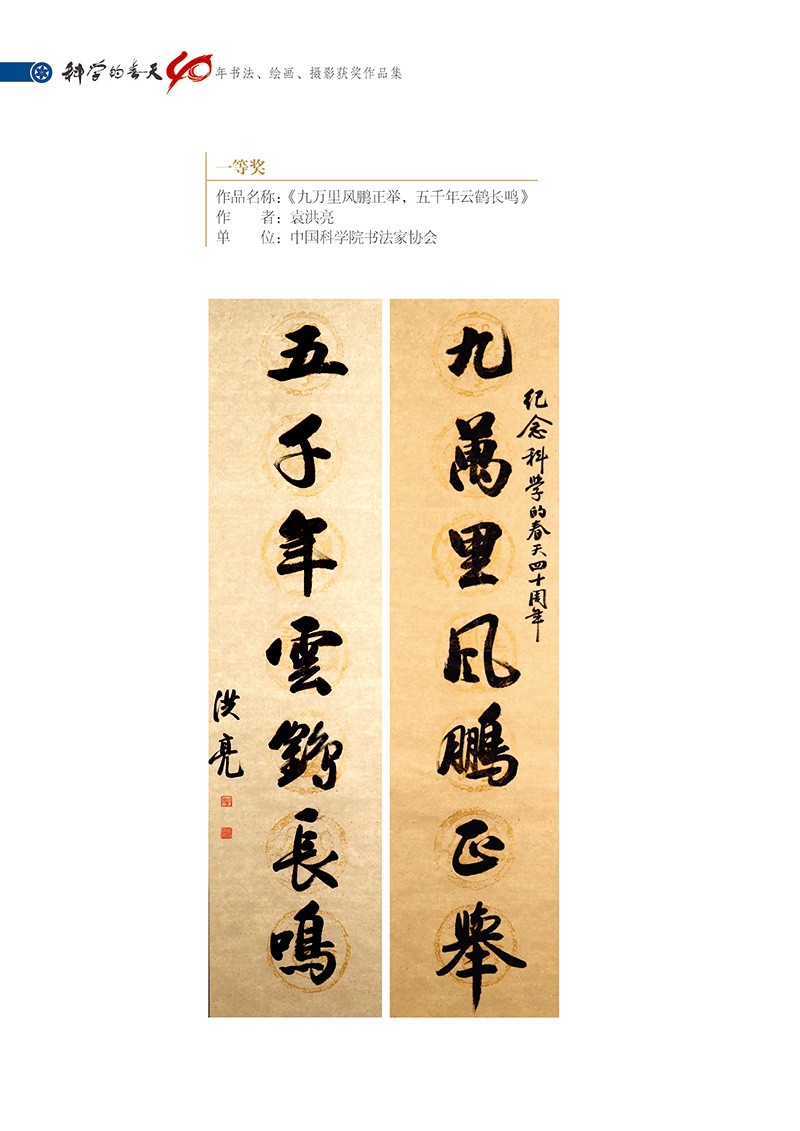 科学的春天40年书法、绘画、摄影获奖作品集
一等奖
作品名称：《九万里风鹏正举，五千年云鹤长鸣》
作　　者：袁洪亮
单　　位：中国科学院书法家协会
紀念科学的春天四十周年
九萬里风鵬正舉
五千年雲鶴長鳴
洪亮